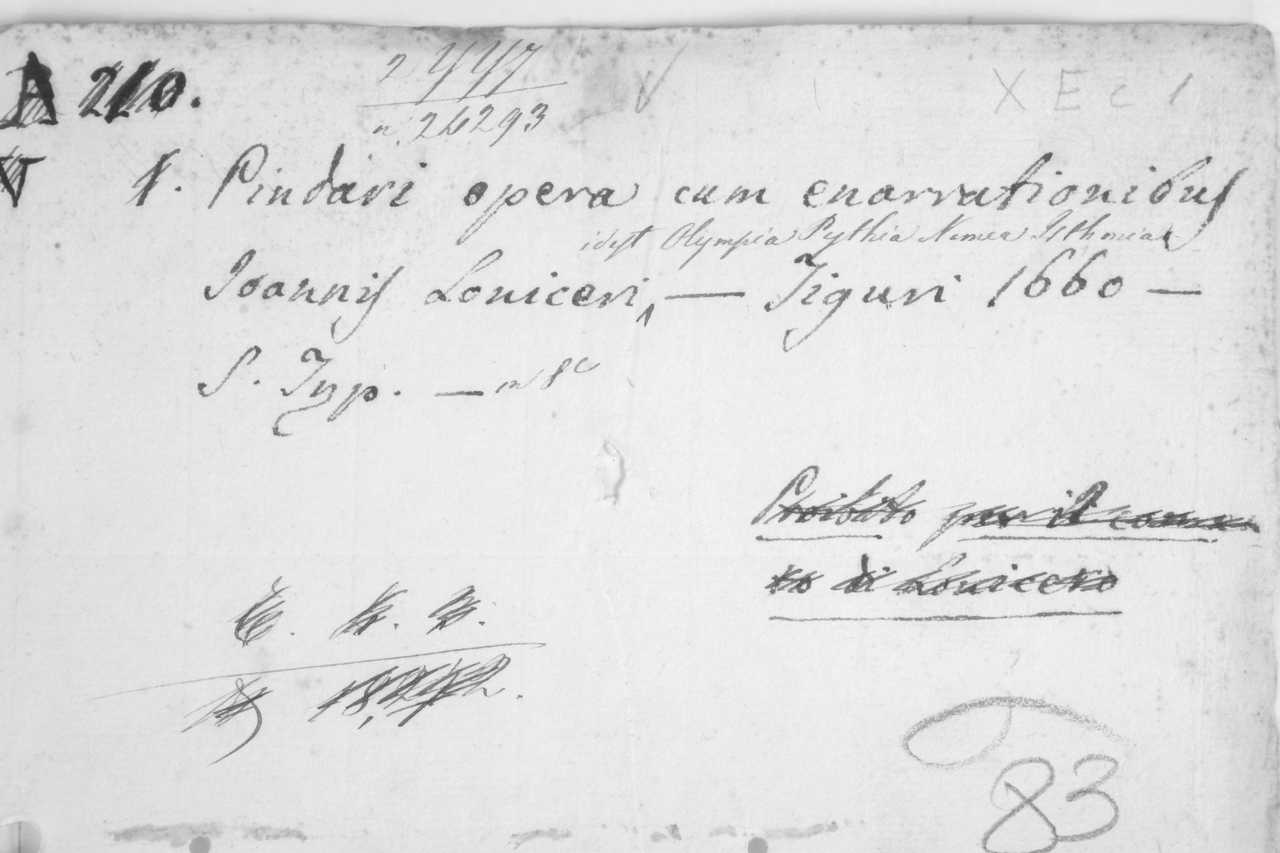 A 210.
n. 26293
X E c 1
V 1. Pindari opera cum enarrationibus
idest Olympia Pythia Nemea Isthmia
Joannis Loniceri, — Tiguri 1660 —
S. Typ. — in 8°
Proibito per il comen
to di Lonicero
83